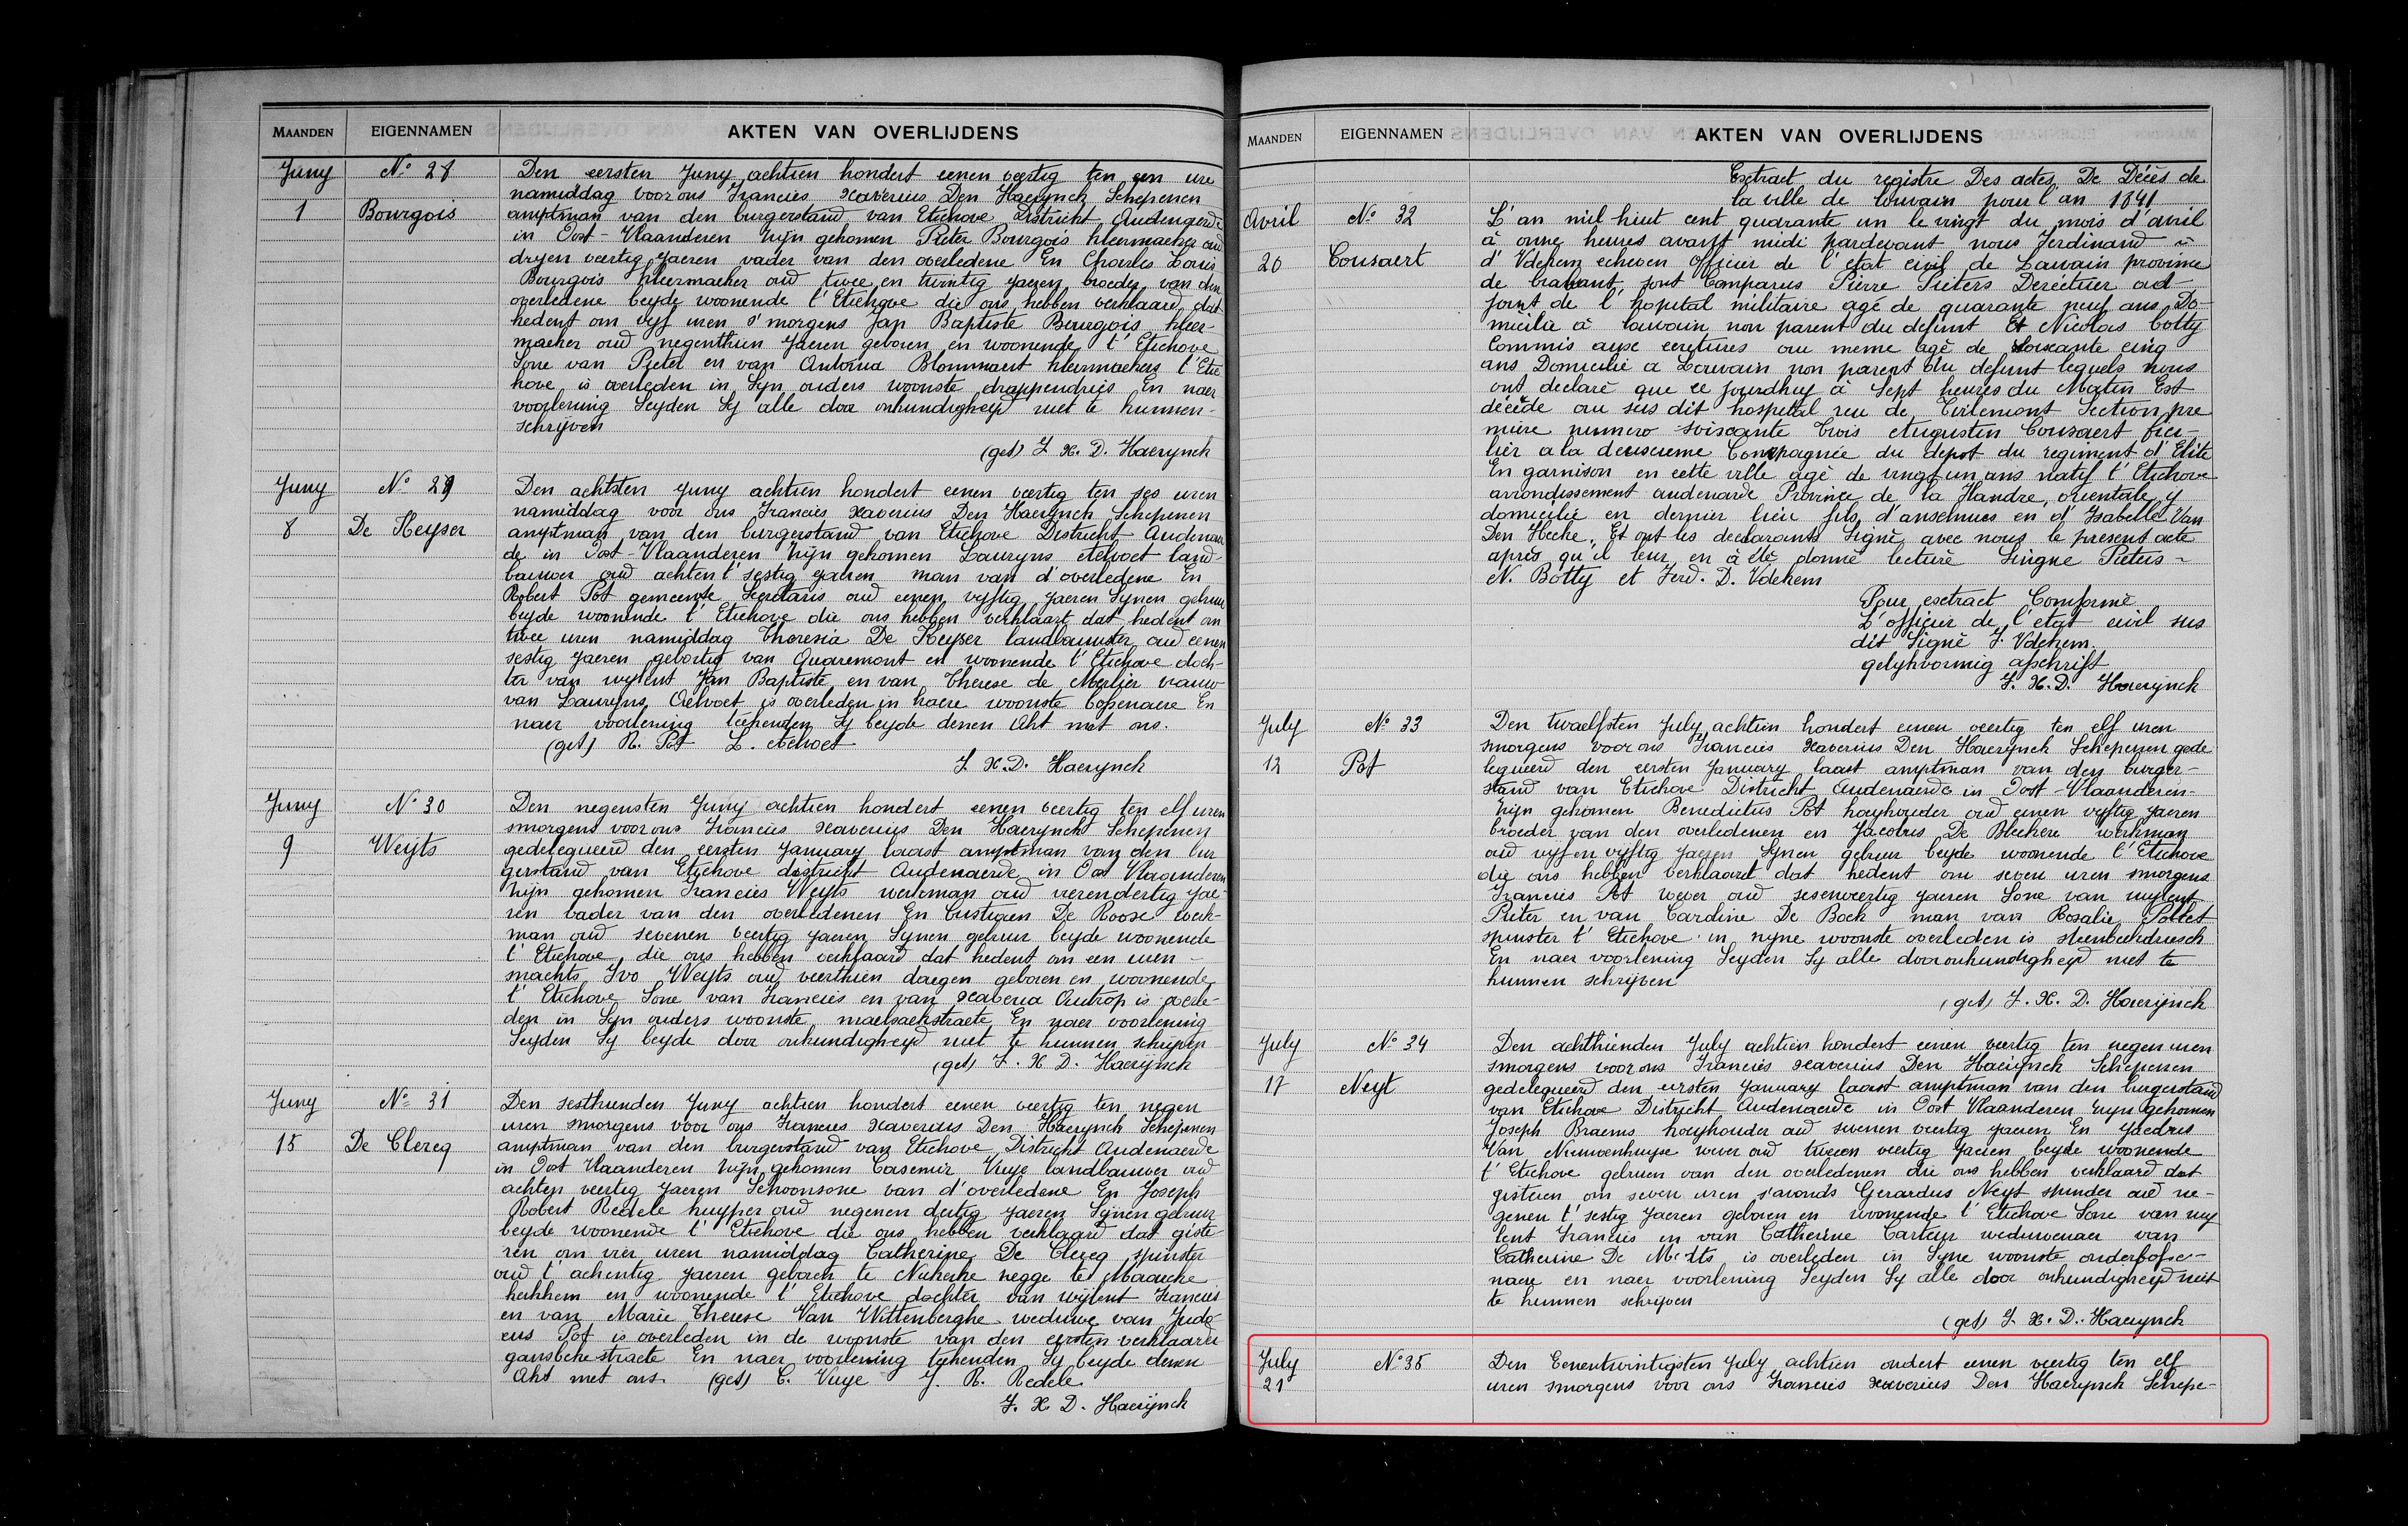 MAANDEN EIGENNAMEN AKTEN VAN OVERLIJDENS
Juny Nº 28
1 Bourgois
Den eersten Juny achtien hondert eenen veertig ten een ure
namiddag voor ons Francies Xaverius Den Haerynck Schepenen
amptman van den burgerstand van Etichove District Audenaerde
in Oost-Vlaanderen zijn gekomen Pieter Bourgois kleermaeker oud
dryen veertig jaeren vader van den overledene En Charles Louis
Bourgois kleermacher oud twee en twintig jaeren broeder van den
overledene beyde woonende t'Etichove die ons hebben verklaard dat
hedent om vyf uren s'morgens Jan Baptiste Bourgois kleer-
macher oud negenthien Jaeren geboren en woonende t'Etichove
Sone van Pieter en van Antonia Blommaert kleermaekers t'Etic
hove is overleden in Syn ouders woonste drappendries En naer
voorlening Seyden Sy alle door onkundigheyd niet te kunnen-
schrijven
(get) F. X. D. Haerynck
Juny Nº 29
8 De Keyser
Den achtsten Juny achtien hondert eenen veertig ten ses uren
namiddag voor ons Francies Xaverius Den Haerynck Schepenen
amptman van den burgerstand van Etichove District Audenaer
de in Oost-Vlaanderen zijn gekomen Lauryns Aelvoet land-
bauwer oud achten t'sestig jaeren man van d'overledene En
Robert Pot gemeente Secretaris oud eenen vyftig jaeren Synen gebuur
beyde woonende t'Etichove die ons hebben verklaart dat hedent om
twee uren namiddag Theresia De Keyser landbauwster oud eenen
sestig jaeren gebortig van Quaremont en woonende t'Etichove doch-
ter van wylent Jan Baptiste en van Therese de Merlier vrauw
van Lauryns Aelvoet is overleden in haere woonste bopenaere En
naer voorlening teekenden Sy beyde denen Akt met ons.
(get) R. Pot L. Aelvoet
F. X. D. Haerynck
Juny Nº 30
9 Weyts
Den negensten Juny achtien hondert eenen veertig ten elf uren
smorgens voor ons Francies Xaverius Den Haerynck Schepenen
gedelegueerd den eersten January laast amptman van den bur
gerstand van Etichove district Audenaerde in Oost Vlaanderen
zijn gekomen Francies Weyts werkman oud vierendertig jae-
ren vader van den overledenen En Custigien De Roose werk-
man oud sevenen veertig jaeren Synen gebuur beyde woonende
t'Etichove die ons hebben verklaard dat hedent om een uren-
snachts Ivo Weyts oud veerthien daegen geboren en woonende
t'Etichove Sone van Francies en van Xaveria Autrop is overle-
den in Syn ouders woonste maelsackstraete En naer voorlening
Seyden Sy beyde door onkundigheyd niet te kunnen schrijven
(get) F. X. D. Haerynck
Juny Nº 31
15 De Clercq
Den sesthienden Juny achtien hondert eenen veertig ten negen
uren smorgens voor ons Francies Xaverius Den Haerynck Schepenen
amptman van den burgerstand van Etichove District Audenaerde
in Oost Vlaanderen zijn gekomen Casemir Vuye landbauwer oud
achten veertig jaeren Schoonsone van d'overledene En Joseph
Robert Redele kuyper oud negenen dertig jaeren Synen gebuur
beyde woonende t'Etichove die ons hebben verklaard dat giste
ren om vier uren namiddag Catherine De Clercq spinster
oud t'achentig jaeren geboren te Nukerke negge te Maercke
kerkhem en woonende t'Etichove dochter van wijlent Francies
en van Marie Therese Van Wittenberghe weduwe van Judo-
cus Pot is overleden in de woonste van den eersten verklaarder
gansbekestraete En naer voorlening teekenden Sy beyde denen
Akt met ons. (get) C. Vuye J. R. Redele
F. X. D. Haerynck
MAANDEN EIGENNAMEN AKTEN VAN OVERLIJDENS
Extract du registre Des actes De Décès de
la ville de louvain pour l'an 1841
Avril Nº 32
20 Cousaert
L'an mil huit cent quarante un le vingt du mois d'avril
à onne heures avant midi pardevant nous Ferdinand
d'Vdekem echeven Officier de l'etat civil de Lauvain province
de brabant sont Comparus Pierre Pieters Derectuer ad-
joint de l'hopital militaire agé de quarante neuf ans Do-
micilié à lauvain non parent du defunt Et Nicolas Cotty
Commis aux ecretures au meme agé de soiscante cinq
ans Domicilié a Louvain non parent du defunt lequels nous
ont declaré que ce jourdhuy à Sept heures du Matin Est
décéde au sus dit hospital rue de Tirlemont Section pre
mière numero soiscante trois Augusten Cousaert fusi-
lier a la deuscieme Compagnie du depot du regiment d'Elite
En garnison en cette ville agé de vingt un ans natif t'Etichove
arrondissement audenarde Province de la Flandre orientale y
domicilie en dernier lieu fils d'anselmus en d'Isabelle Van
Den Hecke. Et ont les declarants Signé avec nous le present acte
aprés qu'il leur en à été donné lecture Singne Pieters-
N. Botty et Ferd. D. Vdekem
Pour extract Comforme
L'officier de l'etat civil sus
dit Signé F. Vdekem
gelykvormig afschrift
F. X. D. Haerynck
July Nº 33
12 Pot
Den twaelfsten July achtien hondert eenen veertig ten elf uren
smorgens voor ons Francies Xaverius Den Haerynck Schepenen gede
legueerd den eersten January laast amptman van den burger-
stand van Etichove District Audenaerde in Oost-Vlaanderen-
zijn gekomen Benedictus Pot hoyhouder oud eenen vyftig jaeren
broeder van den overledenen en Jacobus De Bleckere werkman
oud vijfen vyftig jaeren Synen gebuur beyde woonende t'Etichove
die ons hebben verklaard dat hedent om seven uren smorgens
Francies Pot wever oud sesenveertig jaeren Sone van wylent
Pieter en van Caroline De Bock man van Rosalie Pollet
spinster t'Etichove in syne woonste overleden is steenbeekdriesch
En naer voorlening Seyden Sy alle door onkundigheyd niet te
kunnen schrijven
(get) F. X. D. Haerijnck
July Nº 34
17 Neyt
Den achthienden July achtien hondert eenen veertig ten negen uren
smorgens voor ons Francies Xaverius Den Haerynck Schepenen
gedelegueerd den eersten January laast amptman van den burgerstand
van Etichove District Audenaerde in Oost Vlaanderen zijn gekomen
Joseph Braems hoyhouder oud sevenen veertig jaeren En Jacobus
Van Nieuwenhuyse wever oud tweeen veertig Jaeren beyde woonende
t'Etichove gebruen van den overledenen die ons hebben verklaard dat
gisteren om seven uren s'avonds Gerardus Neyt spinder oud ne-
genen t'sestig Jaeren geboren en woonende t'Etichove Sone van wy
lent Francies en van Catherine Carteur weduwenaer van
Catherine De Medts is overleden in Syne woonste onderbope-
naere en naer voorlening Seyden Sy alle door onkundigheyd niet
te kunnen schrijven
(get) F. X. D. Haerynck
July Nº 35
21
Den Eenentwintigsten July achtien ondert eenen veertig ten elf
uren smorgens voor ons Francies Xaverius Den Haerynck Schepe-